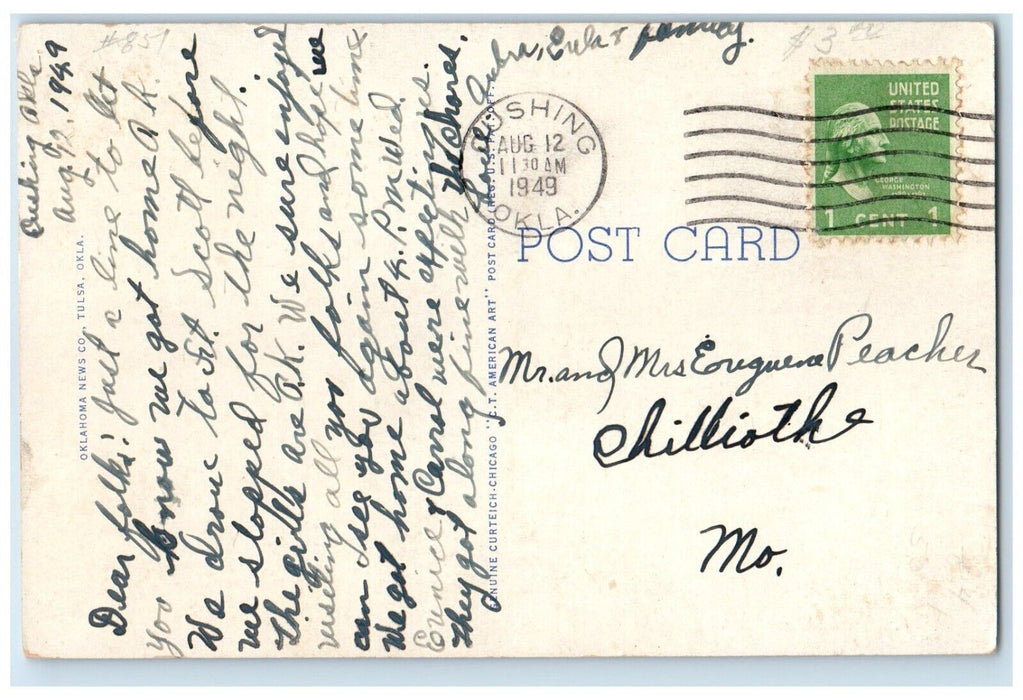 #851
$3.00
Cushing Okla.
Aug. 12, 1949
Dear folks: Just a line to let
you know we got home O.K.
We drove to Ft. Scott before
we stopped for the night.
The girls are O.K. We sure enjoyed
visiting all you folks and hope we
can see you again some time.
We got home about 6. P.M. Wed.
Eunice & Carrol were expecting us.
they got along fine with the chores.
Lula & family.
OKLAHOMA NEWS CO., TULSA, OKLA.
GENUINE CURTEICH-CHICAGO "C.T. AMERICAN ART" POST CARD REG. U.S. PAT. OFF.
CUSHING
AUG 12
11 30 AM
1949
OKLA.
UNITED
STATES
POSTAGE
GEORGE
WASHINGTON
1789-1797
1 CENT 1
POST CARD
Mr. and Mrs Eugene Peacher
Chilliothe
Mo.